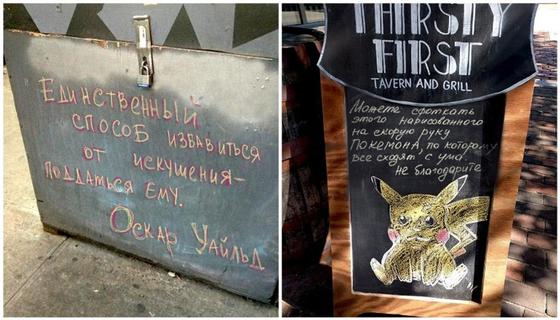 Единственный
способ избавиться
от искушения –
поддаться ему.
Оскар Уайльд
THIRSTY
FIRST
TAVERN AND GRILL
Можете сфоткать
этого нарисованного
на скорую руку
покемона, по которому
все сходят с ума,
не благодарите